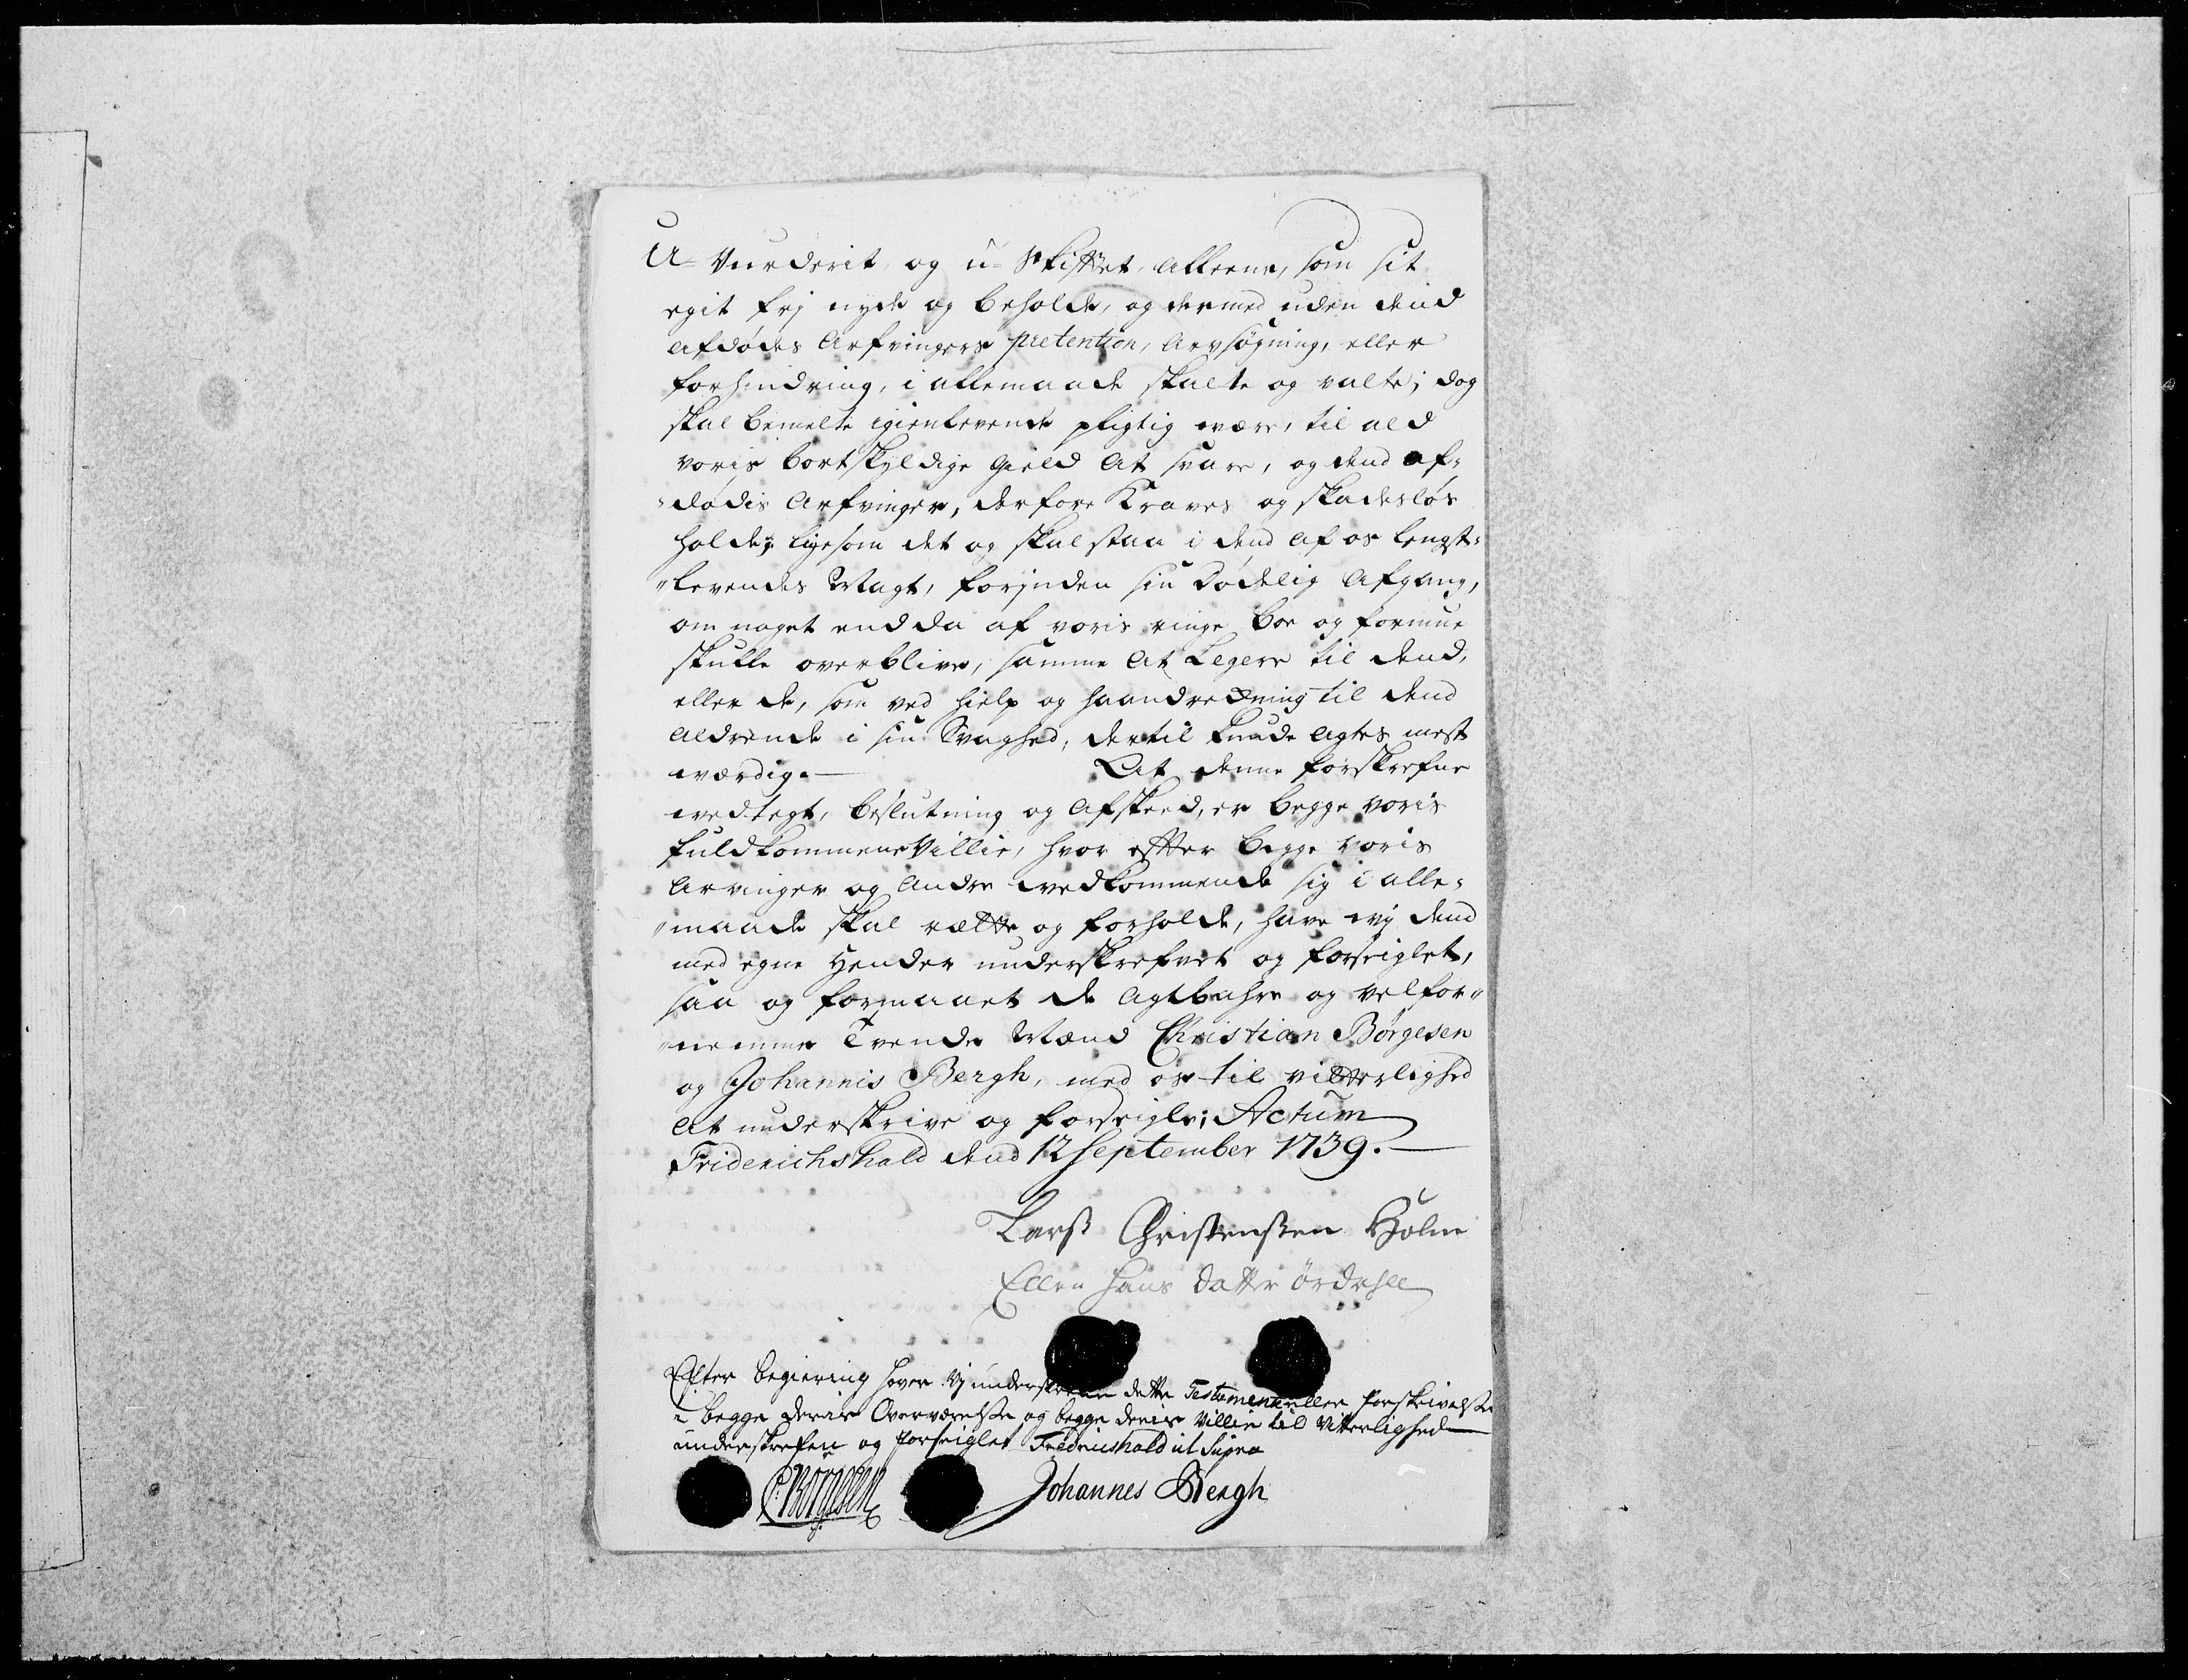 U-Vurderit og u-Skiftet, Alleene, som sit
egit frj nyde og beholde, og dermed uden dend
Afdødes Arfvingers pretention, Arvsøgning, eller
forhindring, i allemaade skalte og valte; dog
skal bemelte igienlevende pligtig være, til ald
voris bortskyldige Gield At svare, og dend af-
-dødis Arfvinger, derfore Kraves og skadesløs
holde; ligesom det og skal staa i dend af os lengst-
-levendes Magt, forjnden sin Dødelig Afgang,
om noget endda af voris ringe boe og formue
skulle overblive, samme At Legere til dend,
eller de, som ved hielp og haandredning til dend
Aldrende i sin Svaghed, dertil kunde Agtes mest
værdig. At denne forskrefne
vedtegt, beslutning og Afskeed, er begge voris
fuldkommene Villie, hvor efter begge voris
Arvinger og Andre vedkommende sig i alle-
-maade skal rætte og forholde, have wj dend
med egne Hender underskrefvet og forseiglet,
saa og formaaet de Agtbahre og velfor-
-nemme Tvende Mænd Christian Børgesen
og Johannis Bergh, med os til vitterlighed
At underskrive og forseigle; Actum
Friderichshald dend 12 September 1739.
Larss Christenssen Holm
Ellen Hans datter ördahll
Efter begiering haver Vj underskrevne dette Testamente eller forskrivelsse
i begge deris Overværelsse og begge deris Villie till Vitterlighed
underskrefen og forseiglet Fredrichshald ut Supra
C: Børgesen Johannes Bergh